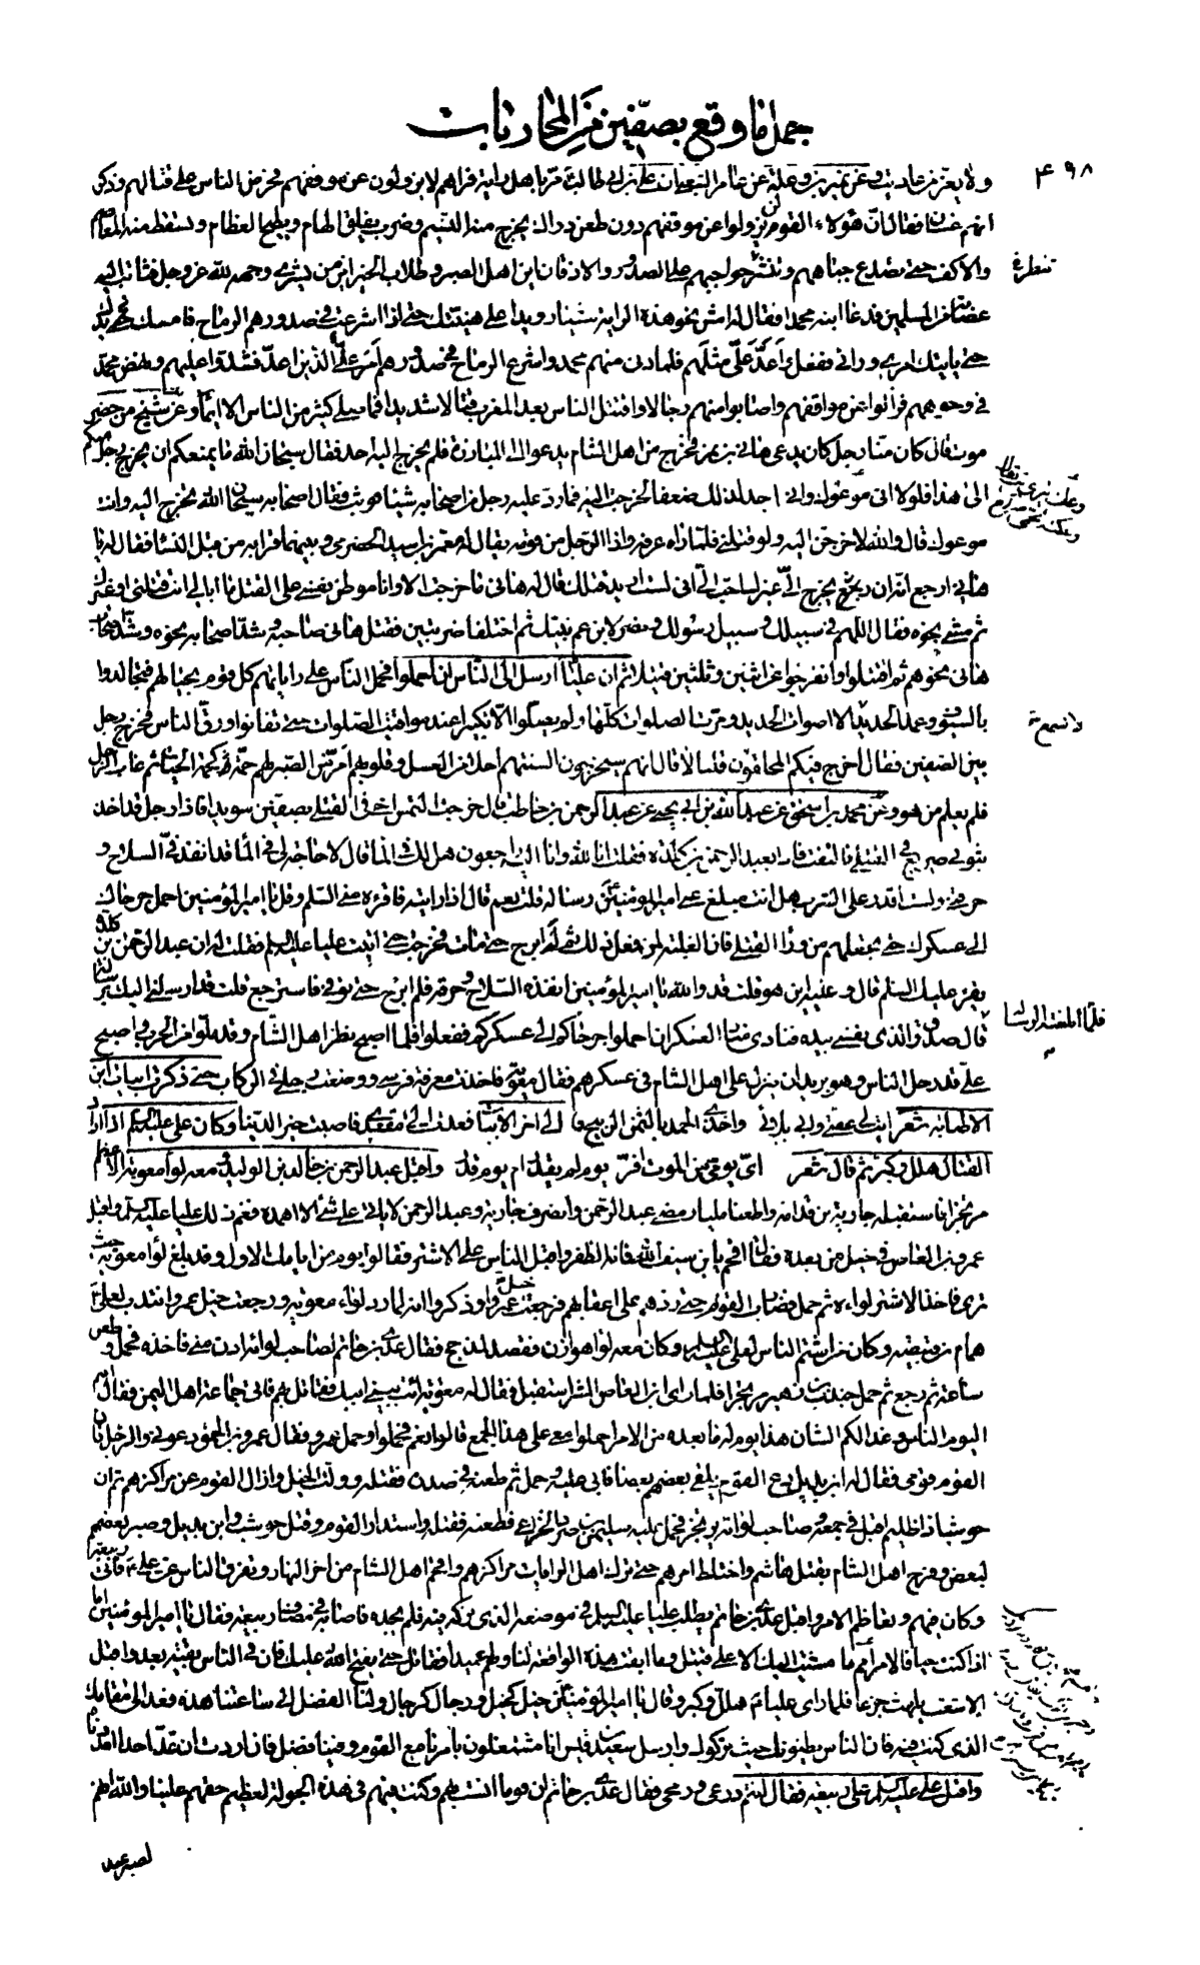 جمل ما وقع بصفين من المحاربات
۴۹۸
ولا يعترض عاديث وعن نمير بن وعلة عن عامر الشعبي ان علي بن ابي طالب مر باهل راية فراهم لا يزولون عن موقفهم فحرض الناس على قتالهم وذكر
انهم غسان فقال ان هؤلاء القوم لن يزولوا عن موقفهم دون طعن دراك يخرج منه النسيم وضرب يفلق الهام ويطيح العظام وتسقط منه المعاصم
والاكف حتى تصدع جباههم وتنثر حواجبهم على الصدور والاذقان اين اهل الصبر وطلاب الخير اين من يشري وجهه لله عز وجل فثابت اليه
عصابة من المسلمين فدعا ابنه محمدا فقال له امش نحو هذه الراية مشيا رويدا على هينتك حتى اذا اشرعت في صدورهم الرماح فامسك يدك
حتى ياتيك امري ورايي ففعل واعد علي مثلهم فلما دنى منهم محمد واشرع الرماح في صدورهم امر علي الذين اعد فشدوا عليهم ونهض محمد
في وجوههم فزالوا عن مواقفهم واصابوا منهم رجالا واقتتل الناس بعد المغرب قتالا شديدا فما صلى كثير من الناس الا ايماء وعن شيخ من حضر
موت قال كان منا رجل كان يدعى هاني بن نمر فخرج من اهل الشام يدعو الى المبارزة فلم يخرج اليه احد فقال سبحان الله ما يمنعكم ان يخرج رجل منكم
الى هذا فلولا اني موعوك واني اجد لذلك ضعفا لخرجت اليه فما رد عليه رجل من اصحابه شيئا فوثب فقال اصحابه سبحان الله تخرج اليه وانت
موعوك قال والله لاخرجن اليه ولو قتلني فلما راه عرفه واذا الرجل من قومه يقال له معمر بن اسيد الحضرمي وبينهما قرابة من قبل النساء فقال له يا
هاني ارجع انه ان يخرج الي غيرك احب الي اني لست اريد قتلك قال له هاني ما خرجت الا وانا موطن نفسي على القتل ما ابالي انت قتلتني او غيرك
ثم مشى نحوه فقال اللهم في سبيلك وسبيل رسولك ونصرا لابن عم نبيك ثم اختلفا ضربتين فقتل هاني صاحبه وشد اصحابه نحوه وشد اصحاب
هاني نحوهم ثم اقتتلوا وانفرجوا عن اثنين وثلثين قتيلا ثم ان عليا ارسل الى الناس ان احملوا فحمل الناس على راياتهم كل قوم بحيالهم فتجالدوا
بالسيوف وعمد الحديد لا اصوات الحديد ومرت الصلوات كلها ولم يصلوا الا تكبيرا عند مواقيت الصلوات حتى تفانوا ورق الناس فخرج رجل
بين الصفين فقال اخرج فيكم المحلقون قلنا لا قال انهم سيخرجون السنتهم احلى من العسل وقلوبهم امر من الصبر لهم حمة كحمة الحيات ثم غاب الرجل
فلم يعلم من هو وعن محمد بن اسحق عن عبد الله بن ابي يحيى عن عبد الرحمن بن حاطب قال خرجت التمس اخي في القتلى بصفين سويدا فاذا رجل قد اخذ
بثوبي صريع في القتلى فالتفت فاذا بعبد الرحمن بن كلدة فقلت انا لله وانا اليه راجعون هل لك في الماء قال لا حاجة لي في الماء قد انفذ في السلاح و
خرقني ولست اقدر على الشرب هل انت مبلغ عني امير المؤمنين رسالة قلت نعم قال اذا رايته فاقرءه مني السلم وقل يا امير المؤمنين احمل جرحاك
الى عسكرك حتى تجعلهم من وراء القتلى فان الغلبة لمن فعل ذلك ثم لم ابرح حتى مات فخرجت حتى اتيت عليا عليه السلم فقلت له ان عبد الرحمن بن كلدة
يقرء عليك السلم قال وعليه اين هو قلت قد والله يا امير المؤمنين انفذه السلاح وخرقه فلم ابرح حتى توفي فاسترجع قلت قد ارسلني اليك برسالة
قال صدق والذي نفسي بيده فنادى منادي العسكر ان احملوا جرحاكم الى عسكركم ففعلوا فلما اصبح نظر اهل الشام وقد ملوا من الحرب واصبح
علي قد رحل الناس وهو يريد ان ينزل على اهل الشام في عسكرهم فقال معوية فاخذت معرفة فرسي ووضعت رجلي في الركاب حتى ذكرت ابيات ابن
الاطنابة شعر ابت لي عفتي وابى بلائي واخذي الحمد بالثمن الربيح الى اخر الابيات فعدت الى مقعدي فاصبت خير الدنيا وكان علي عليه السلم اذا اراد
القتال هلل وكبر ثم قال شعر اي يومي من الموت افر يوم لم يقدر ام يوم قدر واقبل عبد الرحمن بن خالد بن الوليد ومعه لواء معوية الاعظم
مرتجزا فاستقبله جارية بن قدامة واطعنا مليا ومضى عبد الرحمن وانصرف جارية وعبد الرحمن لا ياتي على شئ الا اهمده فغم ذلك عليا عليه السلم واقبل
عمرو بن العاص في خيل من بعده فقال اقحم يا بن سيف الله فانه الظفر واقبل الناس على الاشتر فقالوا يوم من ايامك الاول وقد بلغ لواء معوية حيث
ترى فاخذ الاشتر لواءه ثم حمل فضارب القوم حتى ردهم على اعقابهم فرجعت خيل عمرو وذكروا انه لما رد لواء معوية ورجعت خيل عمرو انتدب لعلي
همام بن قبيصة وكان من اشتم الناس لعلي عليه السلم وكان معه لواء هوازن فقصد لمذحج فقال عدي بن حاتم لصاحب لوائه ادن مني فاخذه فحمل وطعن
ساعة ثم رجع ثم حمل جندب بن زهير مرتجزا فلما راى ابن العاص الشر استقبل فقال له معوية ائت ببني ابيك فقاتل بهم فاتى جماعة اهل اليمن فقال انتم
اليوم الناس وغدا لكم الشان هذا يوم له ما بعده من الامر احملوا معي على هذا الجمع قالوا نعم فحملوا وحمل عمرو فقال عمرو بن الحمق دعوني والرجل فان
القوم قومي فقال له ابن بديل دع القوم يلقى بعضهم بعضا فابى عليه وحمل ثم طعنه في صدره فقتله وولت الخيل وازال القوم عن مراكزهم ثم ان
حوشبا ذا ظليم اقبل في جمعه وصاحب لوائه يرتجز فحمل عليه سليمن بن صرد الخزاعي فطعنه فقتله واستدار القوم وقتل حوشب وابن بديل وصبر بعضهم
لبعض وفرح اهل الشام بقتل هاشم واختلط امرهم حتى ترك اهل الرايات مراكزهم واقحم اهل الشام من اخر النهار وتفرق الناس عن علي فاتى ربيعة
وكان فيهم وتعاظم الامر واقبل عدي بن حاتم يطلب عليا عليه السلم في موضعه الذي تركه فيه فلم يجده فاصابه في مصاف ربيعة فقال يا امير المؤمنين اما
اذا كنت حيا فالامر امم ما مشيت اليك الا على قتيل وما ابقت هذه الواقعة لنا ولهم عميدا فقاتل حتى يفتح الله عليك فان في الناس بقية بعد واقبل
الاشعث يلهث جزعا فلما راى عليا هلل وكبر وقال يا امير المؤمنين خيل كخيل ورجال كرجال ولنا الفضل الى ساعتنا هذه فعد الى مقامك
الذي كنت فيه فان الناس يظنونك حيث تركوك وارسل سعيد بن قيس انا مشتغلون بامرنا مع القوم وفينا فضل فان اردت ان نمد احدا امددناه
واقبل علي عليه السلم على ربيعة فقال انتم درعي ورمحي فقال عدي بن حاتم ان قوما انست بهم وكنت فيهم في هذه الجولة لعظيم حقهم علينا والله انهم
لصبر عند